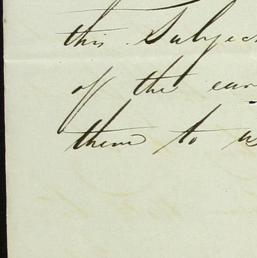 this Subjec
of the ear
them to u